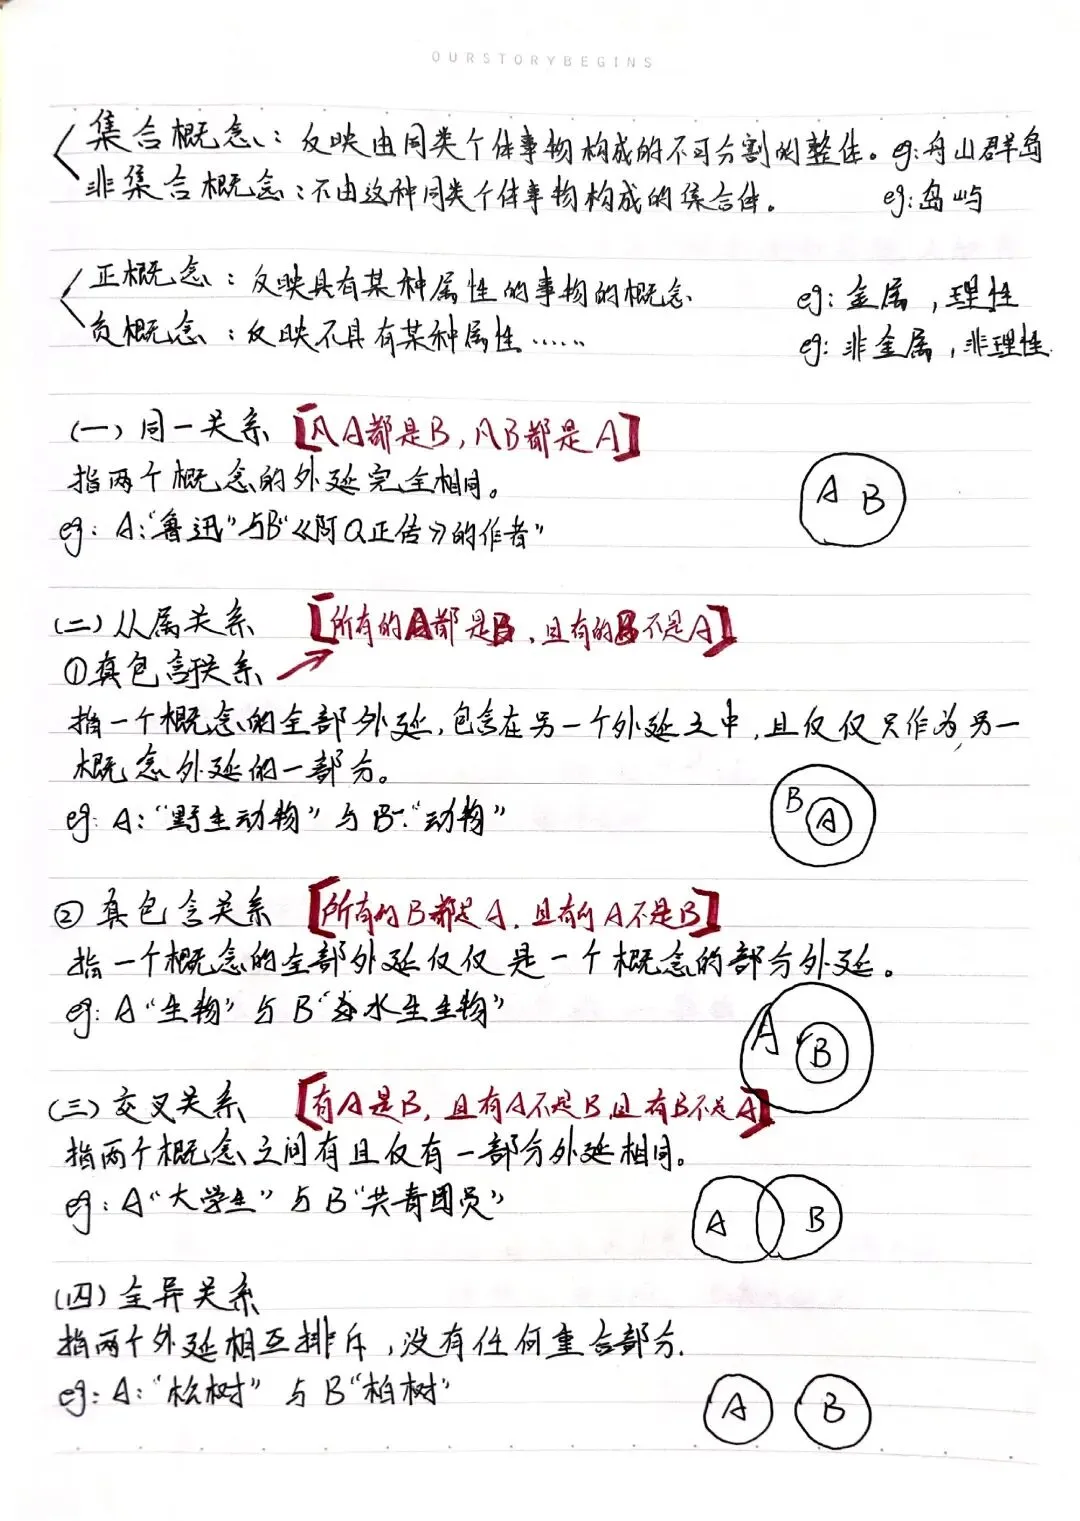 OURSTORYBEGINS
集合概念：反映由同类个体事物构成的不可分割的整体。eg:舟山群岛
非集合概念：不由这种同类个体事物构成的集合体。 eg:岛屿
正概念：反映具有某种属性的事物的概念 eg: 金属，理性
负概念：反映不具有某种属性…… eg: 非金属，非理性
(一) 同一关系 [凡A都是B，凡B都是A]
指两个概念的外延完全相同。
A B
eg: A:“鲁迅”与B“《阿Q正传》的作者”
(二) 从属关系 [所有的A都是B，且有的B不是A]
①真包含于关系
指一个概念的全部外延，包含在另一个外延之中，且仅仅只作为另一
概念外延的一部分。
eg: A:“野生动物”与B:“动物”
B A
② 真包含关系 [所有的B都是A，且有的A不是B]
指一个概念的全部外延仅仅是一个概念的部分外延。
eg: A“生物”与B“水生生物”
A B
(三) 交叉关系 [有A是B，且有A不是B,且有B不是A]
指两个概念之间有且仅有一部分外延相同。
eg: A“大学生”与B“共青团员”
A B
(四) 全异关系
指两个外延相互排斥，没有任何重合部分.
eg: A:“松树”与B“柏树”
A B